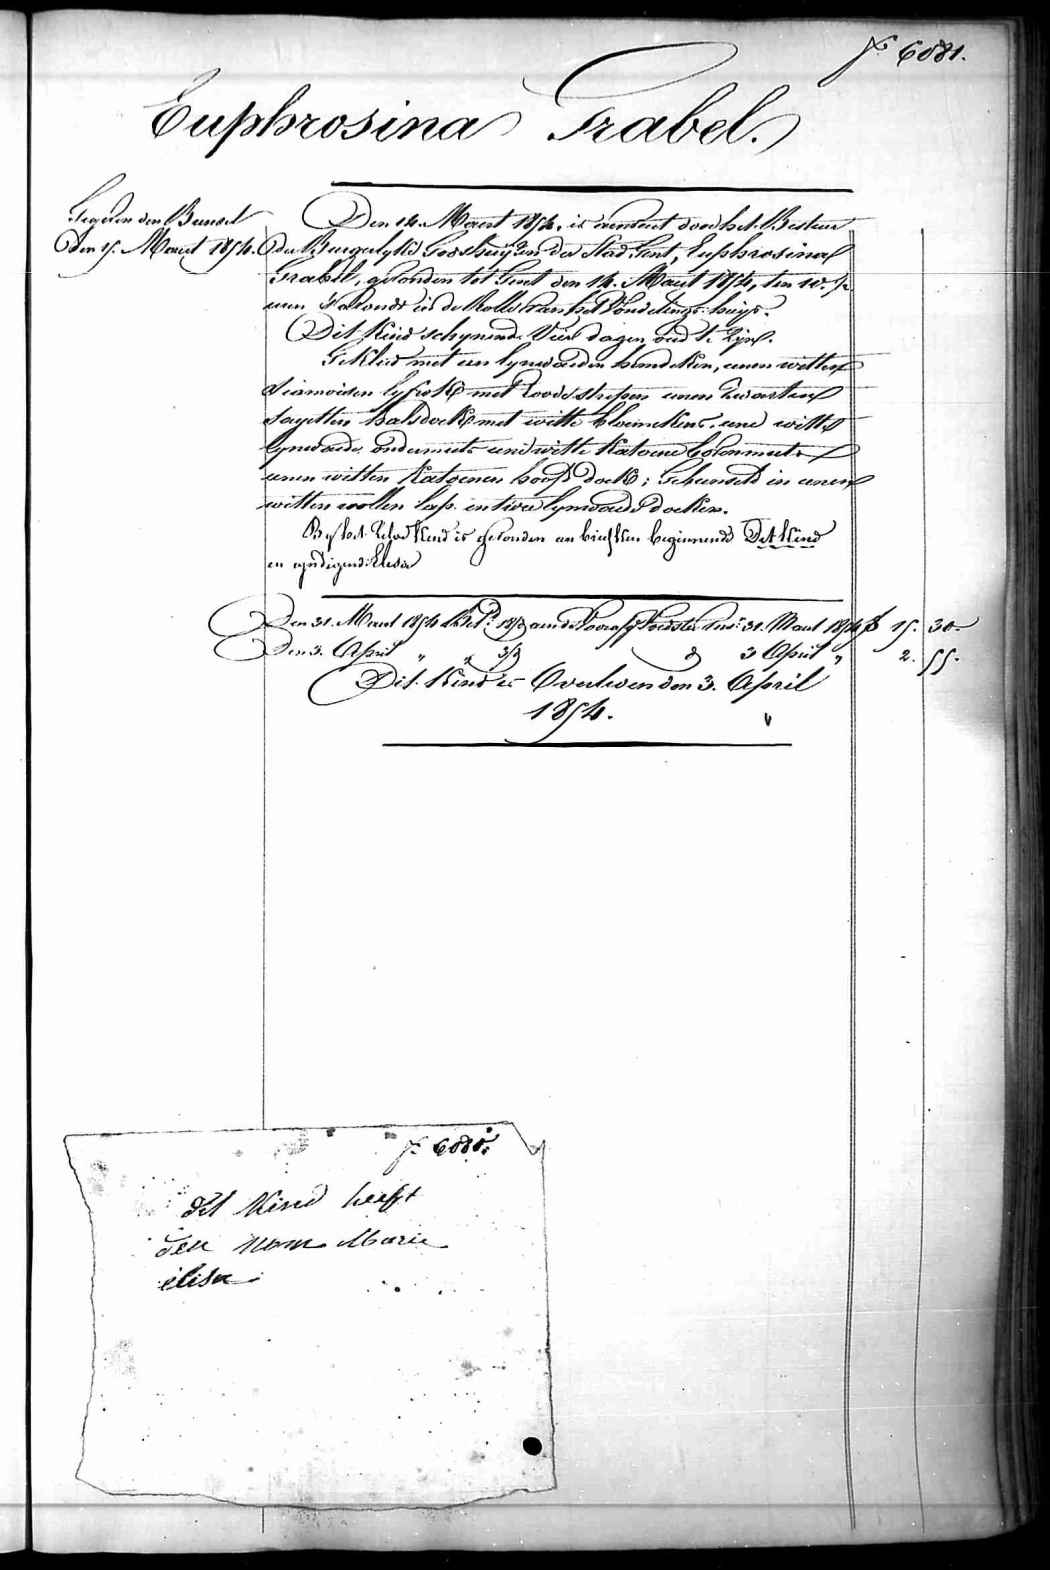 N° 6081.
Euphrosina Grabel.
den Beurset
den 15. Maert 1854.
Den 14. Maert 1854, is door het Bestuer
der Burgerlyke Godshuyzen der Stad Gent, Euphrosina
Grabel, gevonden tot Gent den 14. Maert 1854, ten 10. ½
uren s'avonds in de Rolle van het Vondelings-huys.
Dit Kind schynende Vier dagen oud te Zyn.
Gekleed met een lynwaeden hemdeken, eenen witten
siamoisen lyfrok met roode strepen eenen zwarten
sayetten halsdoek met witte bloemekens, eene witte
lynwaede ondermuts eene witte katoene bovenmuts
eenen witten katoenen hoofd doek; Gebunseld in eenen
witten wollen lap en twee lynwaede doeken.
By het Zelve Kind is gevonden een briefken beginnende Det Kind
en eyndigende Elisa
Den 31. Maert 1854 aen de Voorsz. Voedster 31. Maert 1854 f 15. 30.
Den 3. April " " 3 April " 2. 55.
Dit Kind is Overleden den 3. April
1854.
N° 6081.
det Kind heeft
den nom Marie
elisa